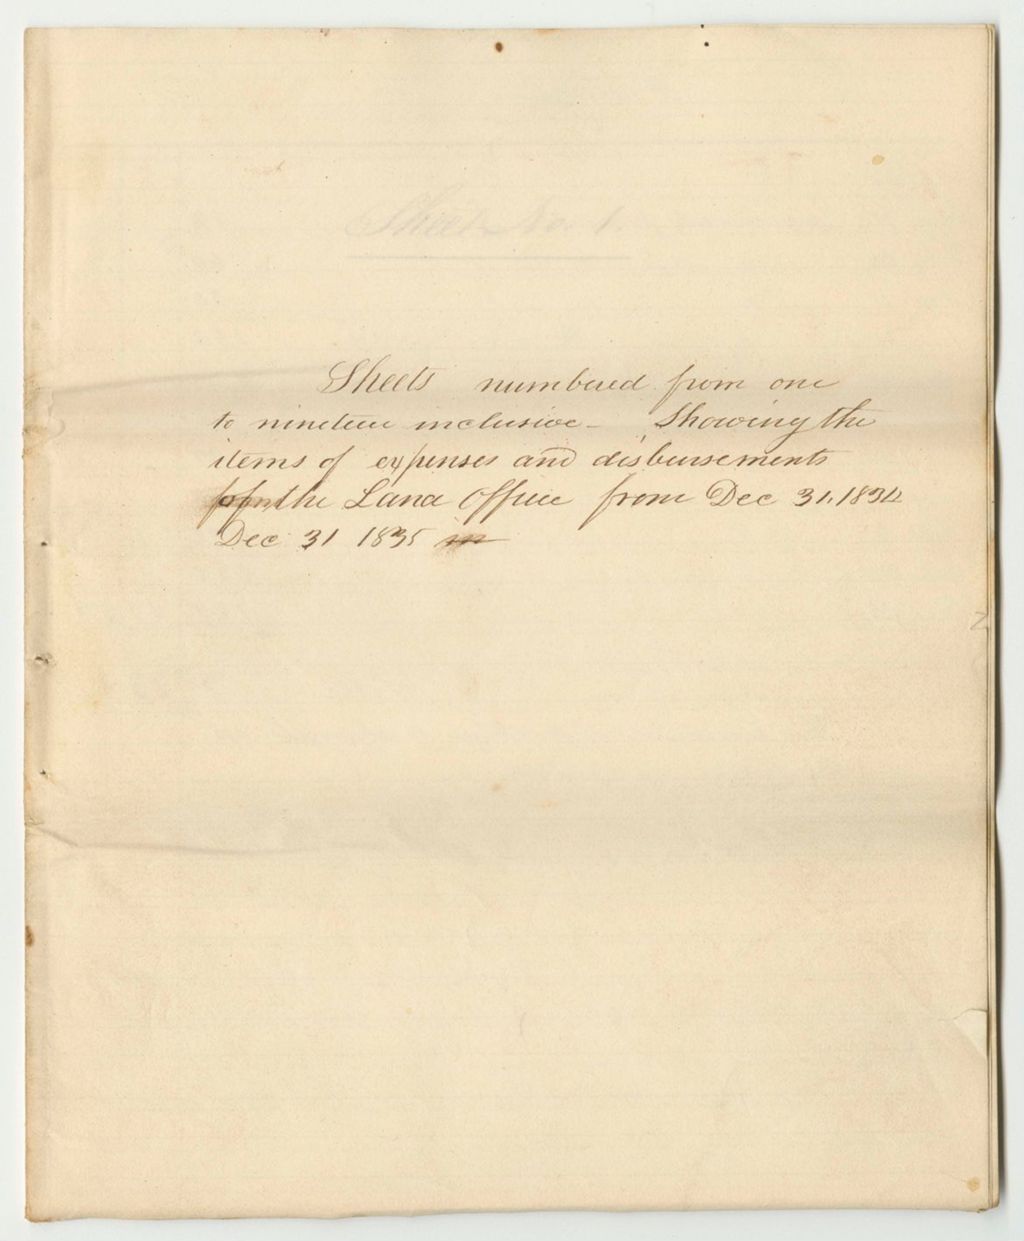 Sheet No. 1.
Sheets numbered from one
to nineteen inclusive - Showing the
items of expenses and disbursements
the Land Office from Dec 31, 1834
Dec 31 1835 in